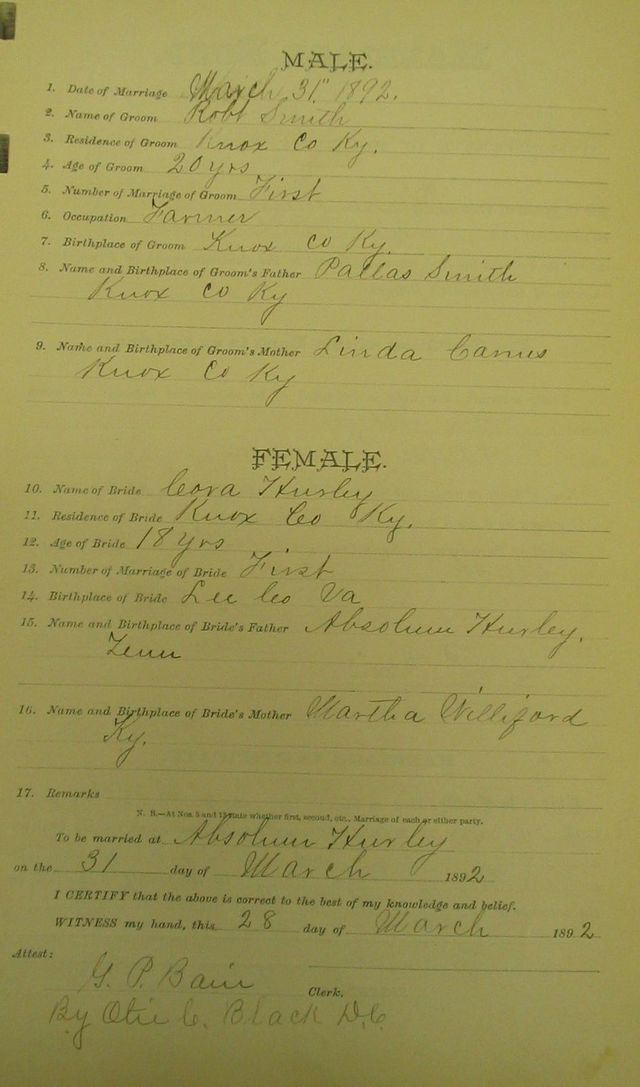 MALE.
1. Date of Marriage March 31" 1892.
2. Name of Groom Robt Smith
3. Residence of Groom Knox Co Ky.
4. Age of Groom 20 yrs
5. Number of Marriage of Groom First
6. Occupation Farmer
7. Birthplace of Groom Knox Co Ky.
8. Name and Birthplace of Groom's Father Pallas Smith
Knox Co Ky
9. Name and Birthplace of Groom's Mother Linda
Knox Co Ky
FEMALE.
10. Name of Bride Cora Hurley
11. Residence of Bride Knox Co Ky.
12. Age of Bride 18 yrs
13. Number of Marriage of Bride First
14. Birthplace of Bride Lee Co Va
15. Name and Birthplace of Bride's Father Absolum Hurley.
Tenn
16. Name and Birthplace of Bride's Mother Martha Williford
Ky.
17. Remarks
N. B.—At Nos. 5 and 13 state whether first, second, etc., Marriage of each or either party.
To be married at Absolum Hurley
on the 31 day of March 1892
I CERTIFY that the above is correct to the best of my knowledge and belief.
WITNESS my hand, this 28 day of March 1892
Attest:
G. P. Bain
Clerk.
By C. Black D.C.